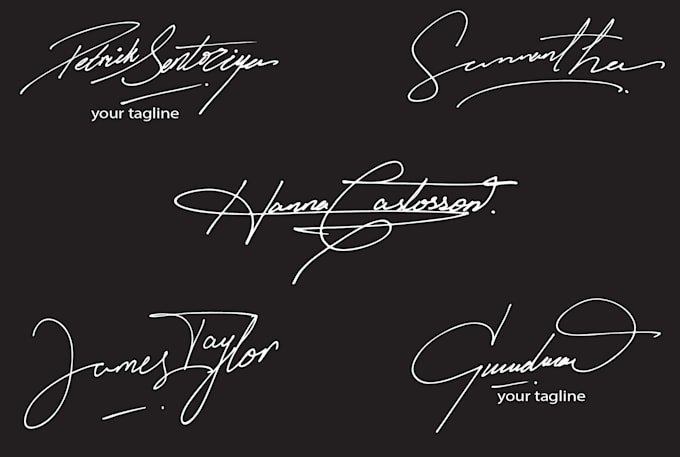 Petrick Sentoriya
your tagline
Samantha
Hanna Castosson.
James Taylor
your tagline